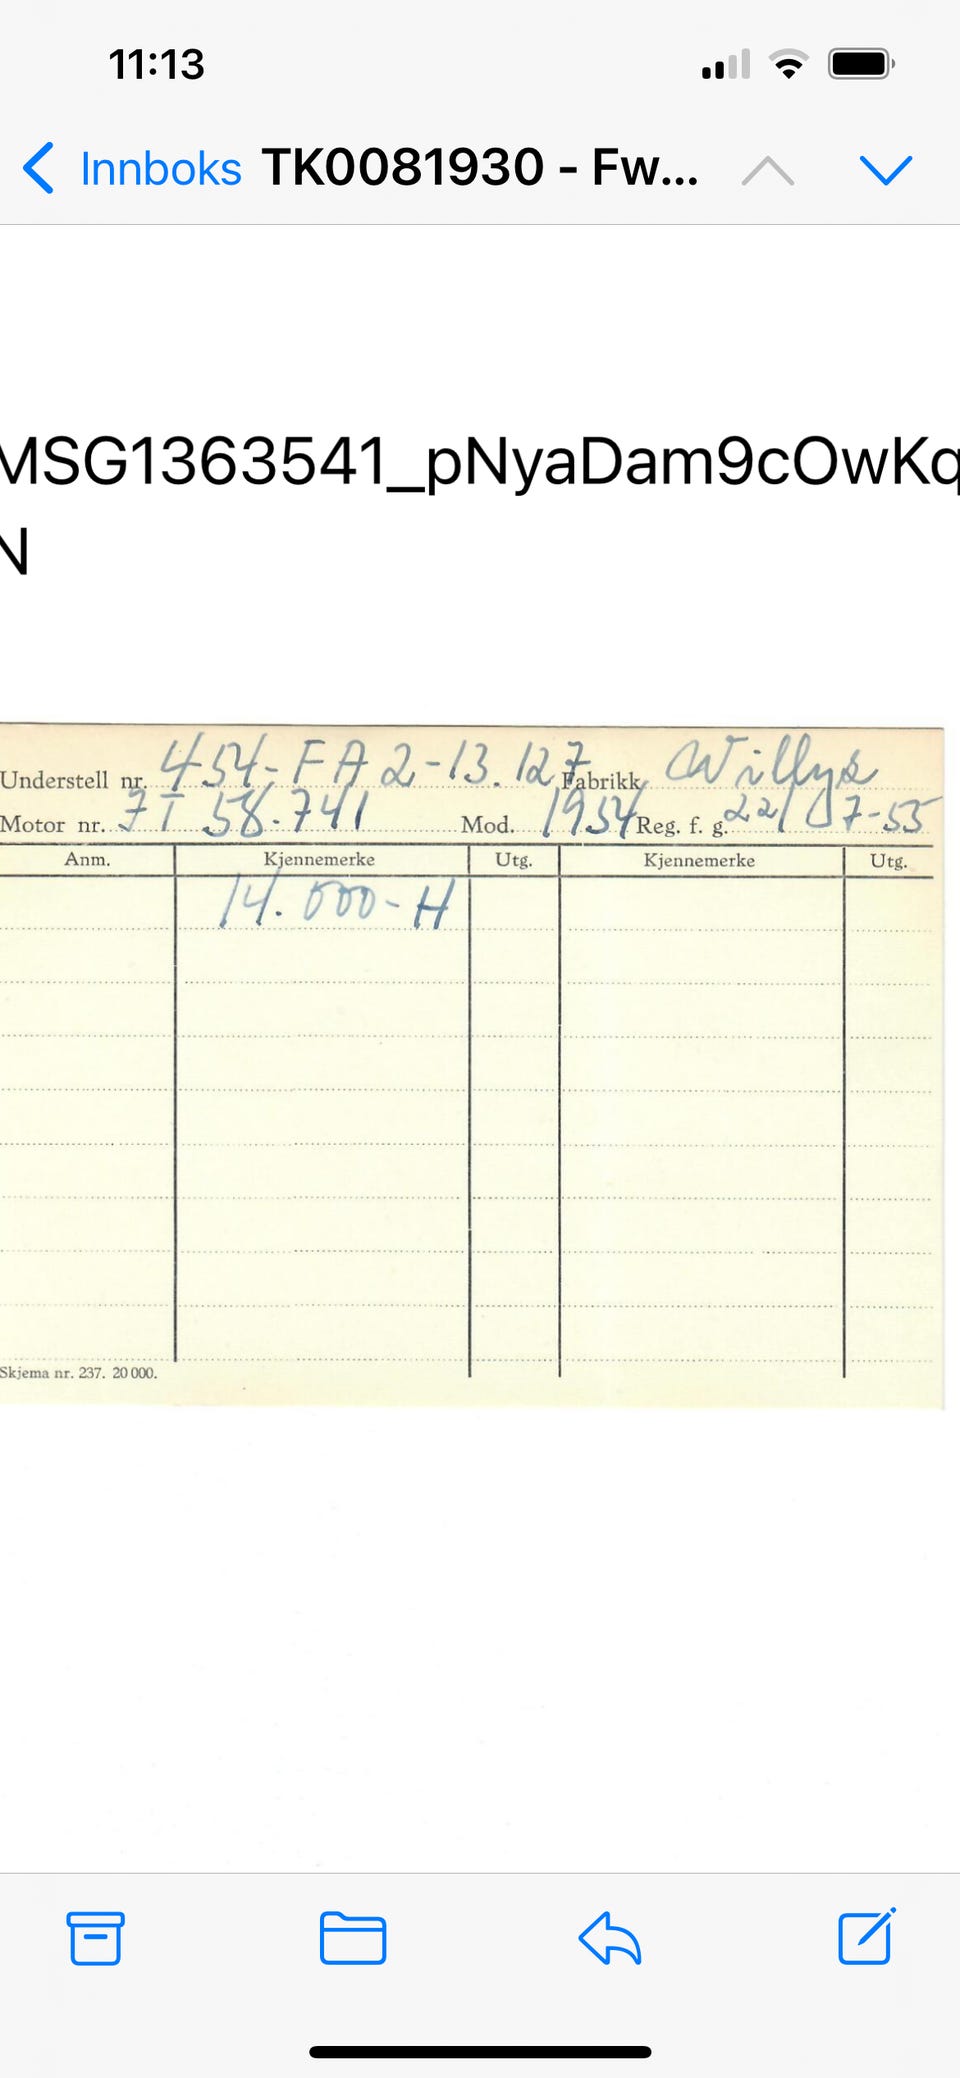 11:13
Innboks TK0081930 - Fw...
MSG1363541_pNyaDam9cOwKq
N
Understell nr. 454-FA2-13.127 Fabrikk Willys
Motor nr. 7T 58.741 Mod. 1954 Reg. f. g. 22/07-55
Anm. Kjennemerke Utg. Kjennemerke Utg.
14.000-H
Skjema nr. 237. 20 000.